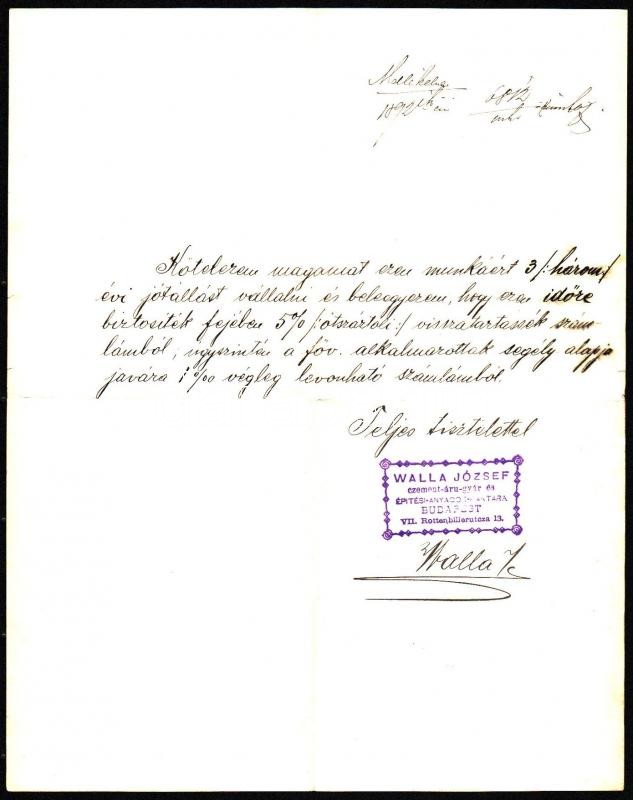 Melléklet
1892 évi 6812 számhoz.
Kötelezem magamat ezen munkáért 3 /: három :/
évi jótállást vállalni és beleegyezem, hogy ezen időre
biztosíték fejében 5% /: ötszáztoli :/ visszatartassék szám-
lámból, ugyszintén a föv. alkalmazottak segély alapja
javára 1 ‰ végleg levonható számlámból.
Teljes tisztelettel
WALLA JÓZSEF
czement-áru-gyár és
ÉPITÉSI-ANYAGOK RAKTARA
BUDAPEST
VII. Rottenbillerutcza 13.
Walla J.